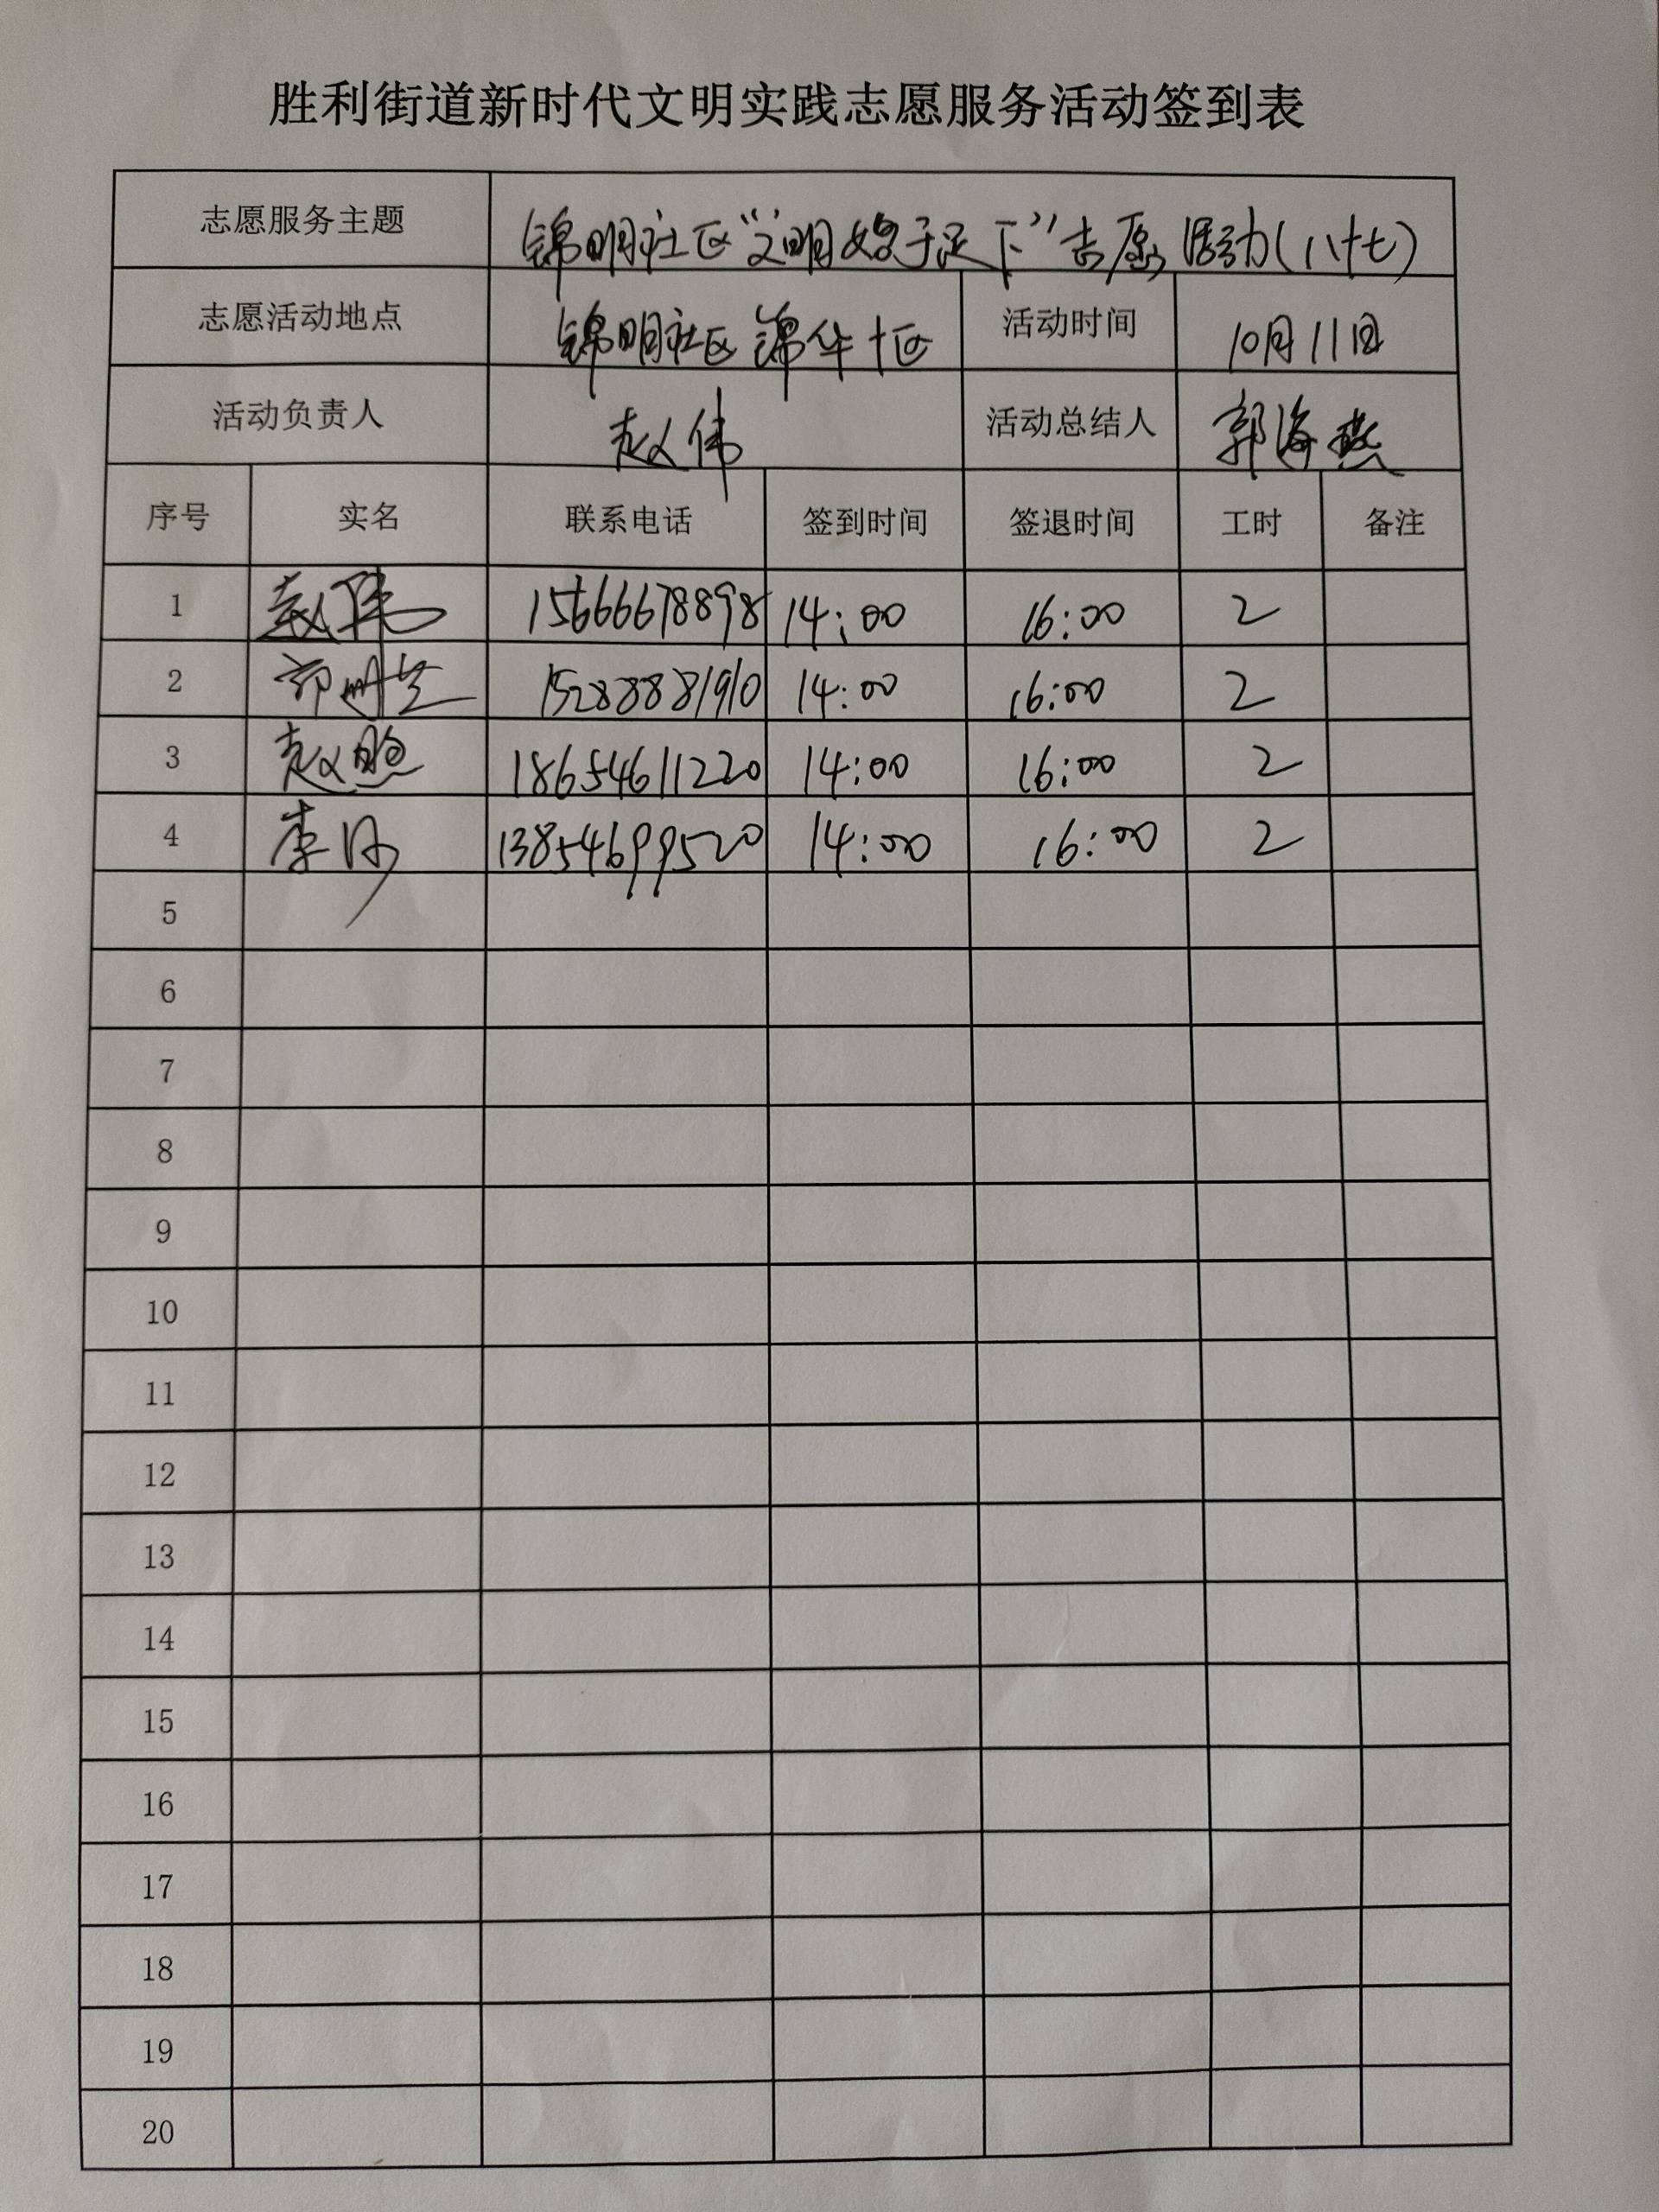 胜利街道新时代文明实践志愿服务活动签到表
志愿服务主题 锦明社区“文明始于足下”志愿活动(八十七)
志愿活动地点 锦明社区锦华十区 活动时间 10月11日
活动负责人 赵伟 活动总结人 郭海燕
序号 实名 联系电话 签到时间 签退时间 工时 备注
1 赵伟 15666678898 14:00 16:00 2
2 15288881910 14:00 16:00 2
3 赵 18654611220 14:00 16:00 2
4 李 13854699520 14:00 16:00 2
5
6
7
8
9
10
11
12
13
14
15
16
17
18
19
20